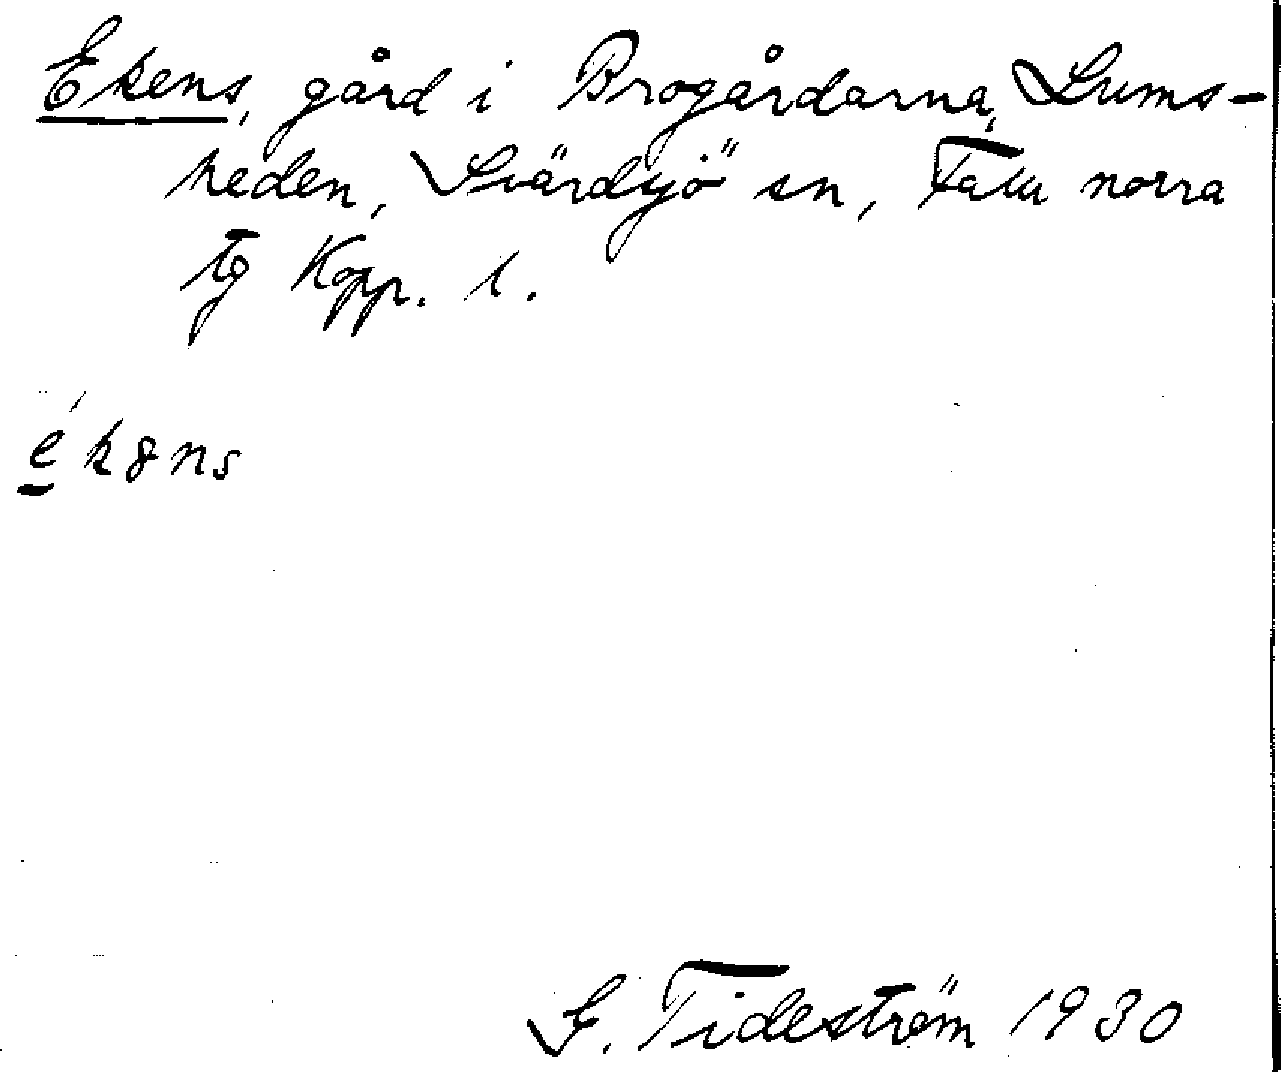 Ekens, gård i Brogårdarna, Lums-
heden, Svärdsjö sn, Falu norra
tg Kopp. l.
ék8ns
G. Tideström 1930